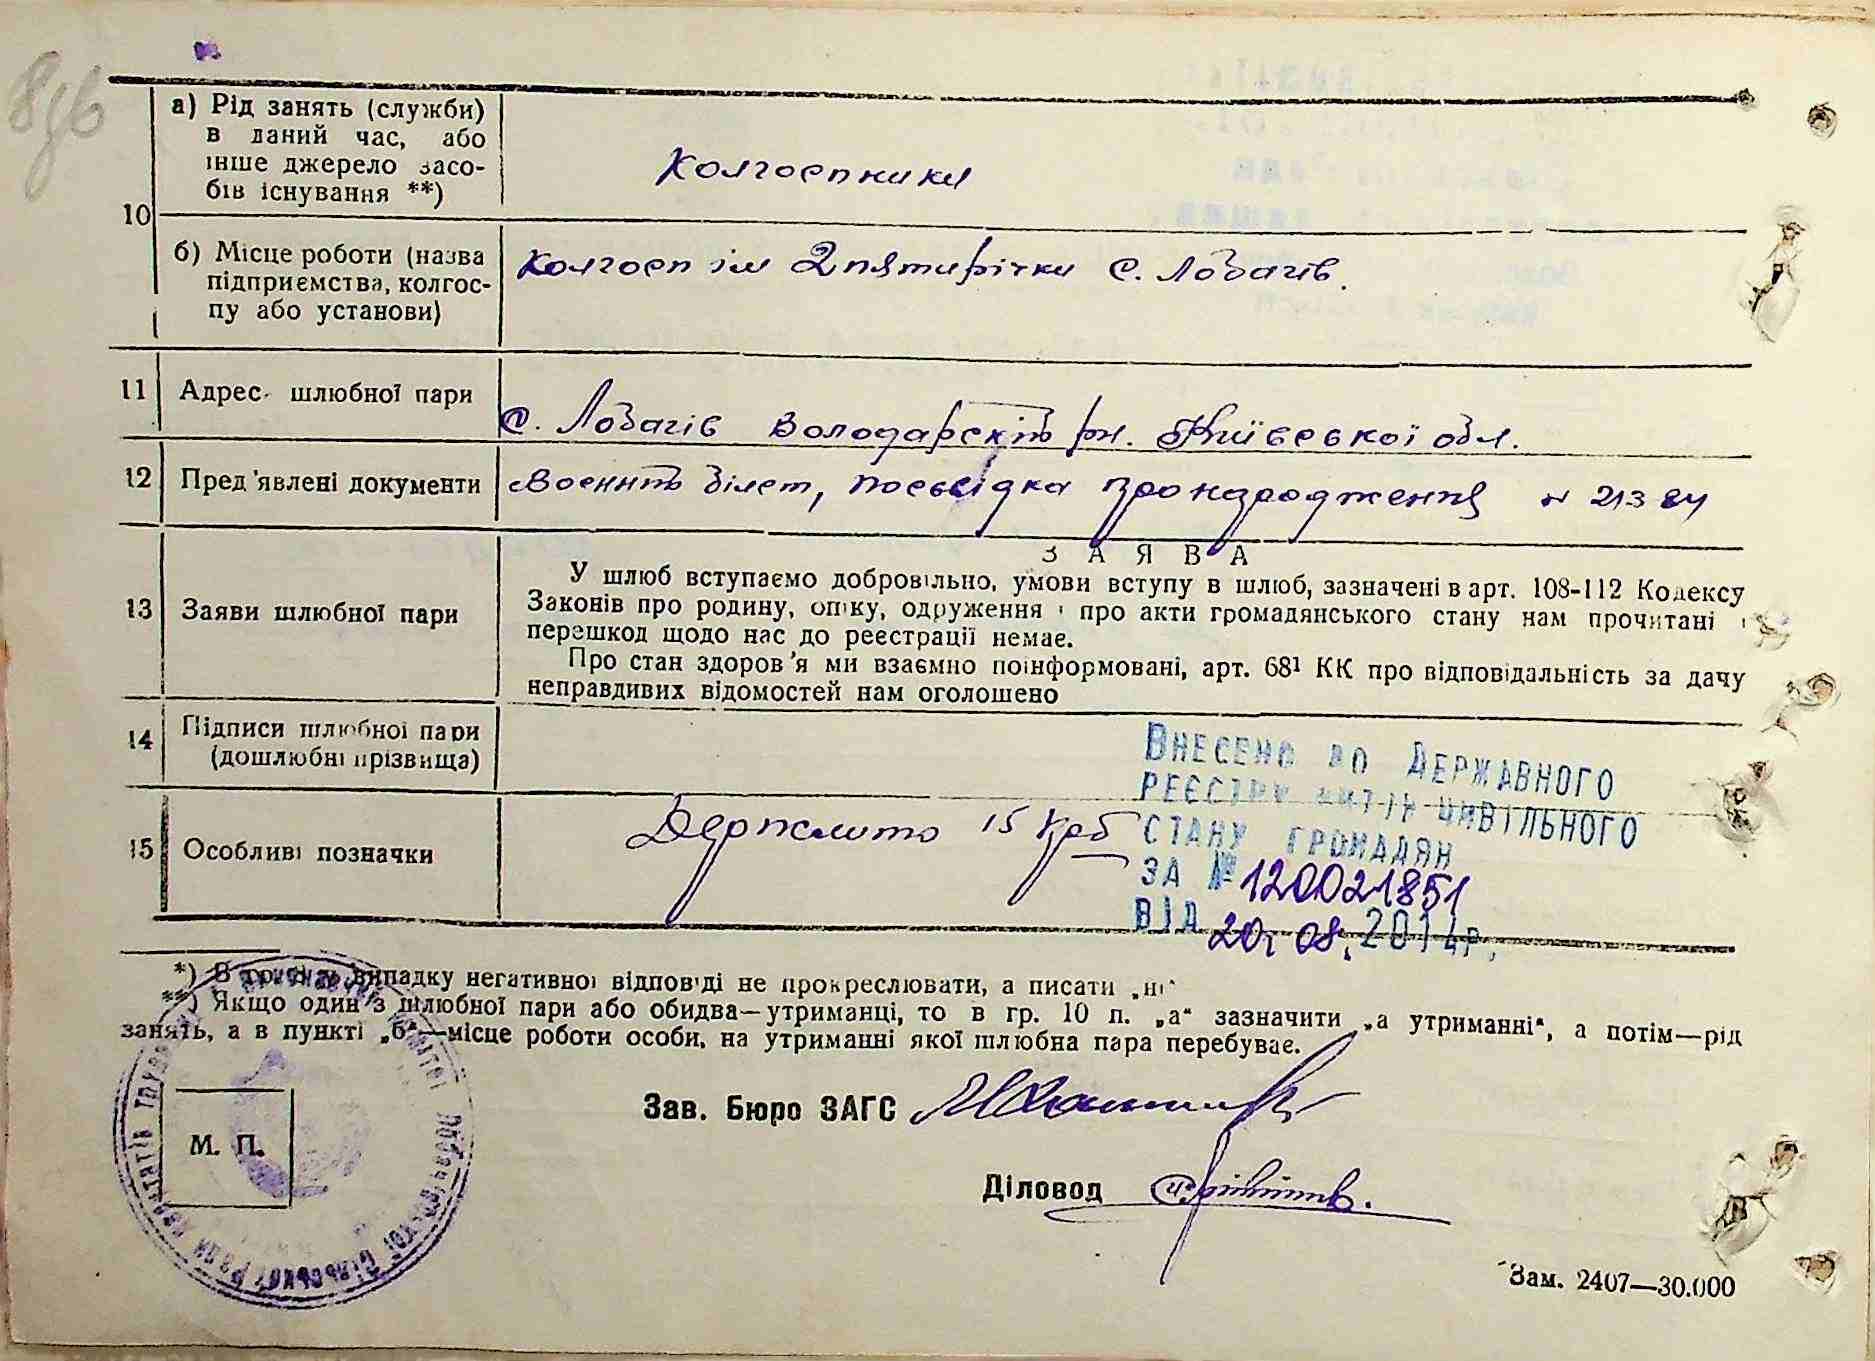 а) Рід занять (служби)
в даний час, або
інше джерело засо-
бів існування **)
Колгоспники
10
б) Місце роботи (назва
підприємства, колгос-
пу або установи)
Колгосп ім 2 пятирічки с. Лобачів.
11 Адрес шлюбної пари
с. Лобачів Володарский рн. Київської обл.
12 Пред'явлені документи
Военний білет, посвідка про народження № 21384
З А Я В А
13 Заяви шлюбної пари
У шлюб вступаємо добровільно, умови вступу в шлюб, зазначені в арт. 108-112 Кодексу
Законів про родину, опіку, одруження і про акти громадянського стану нам прочитані і
перешкод щодо нас до реєстрації немає.
Про стан здоров'я ми взаємно поінформовані, арт. 68¹ КК про відповідальність за дачу
неправдивих відомостей нам оголошено
14 Підписи шлюбної пари
(дошлюбні прізвища)
15 Особливі позначки
Держмито 15 крб
Внесено до Державного
реєстру актів цивільного
стану громадян
за № 120021851
від 20. 08. 2014р.
*) В випадку негативної відповіді не прокреслювати, а писати „ні"
**) Якщо один з шлюбної пари або обидва—утриманці, то в гр. 10 п. „а" зазначити „а утриманні", а потім—рід
занять, а в пункті „б"—місце роботи особи, на утриманні якої шлюбна пара перебуває.
Зав. Бюро ЗАГС
М. П.
Діловод
Зам. 2407—30.000